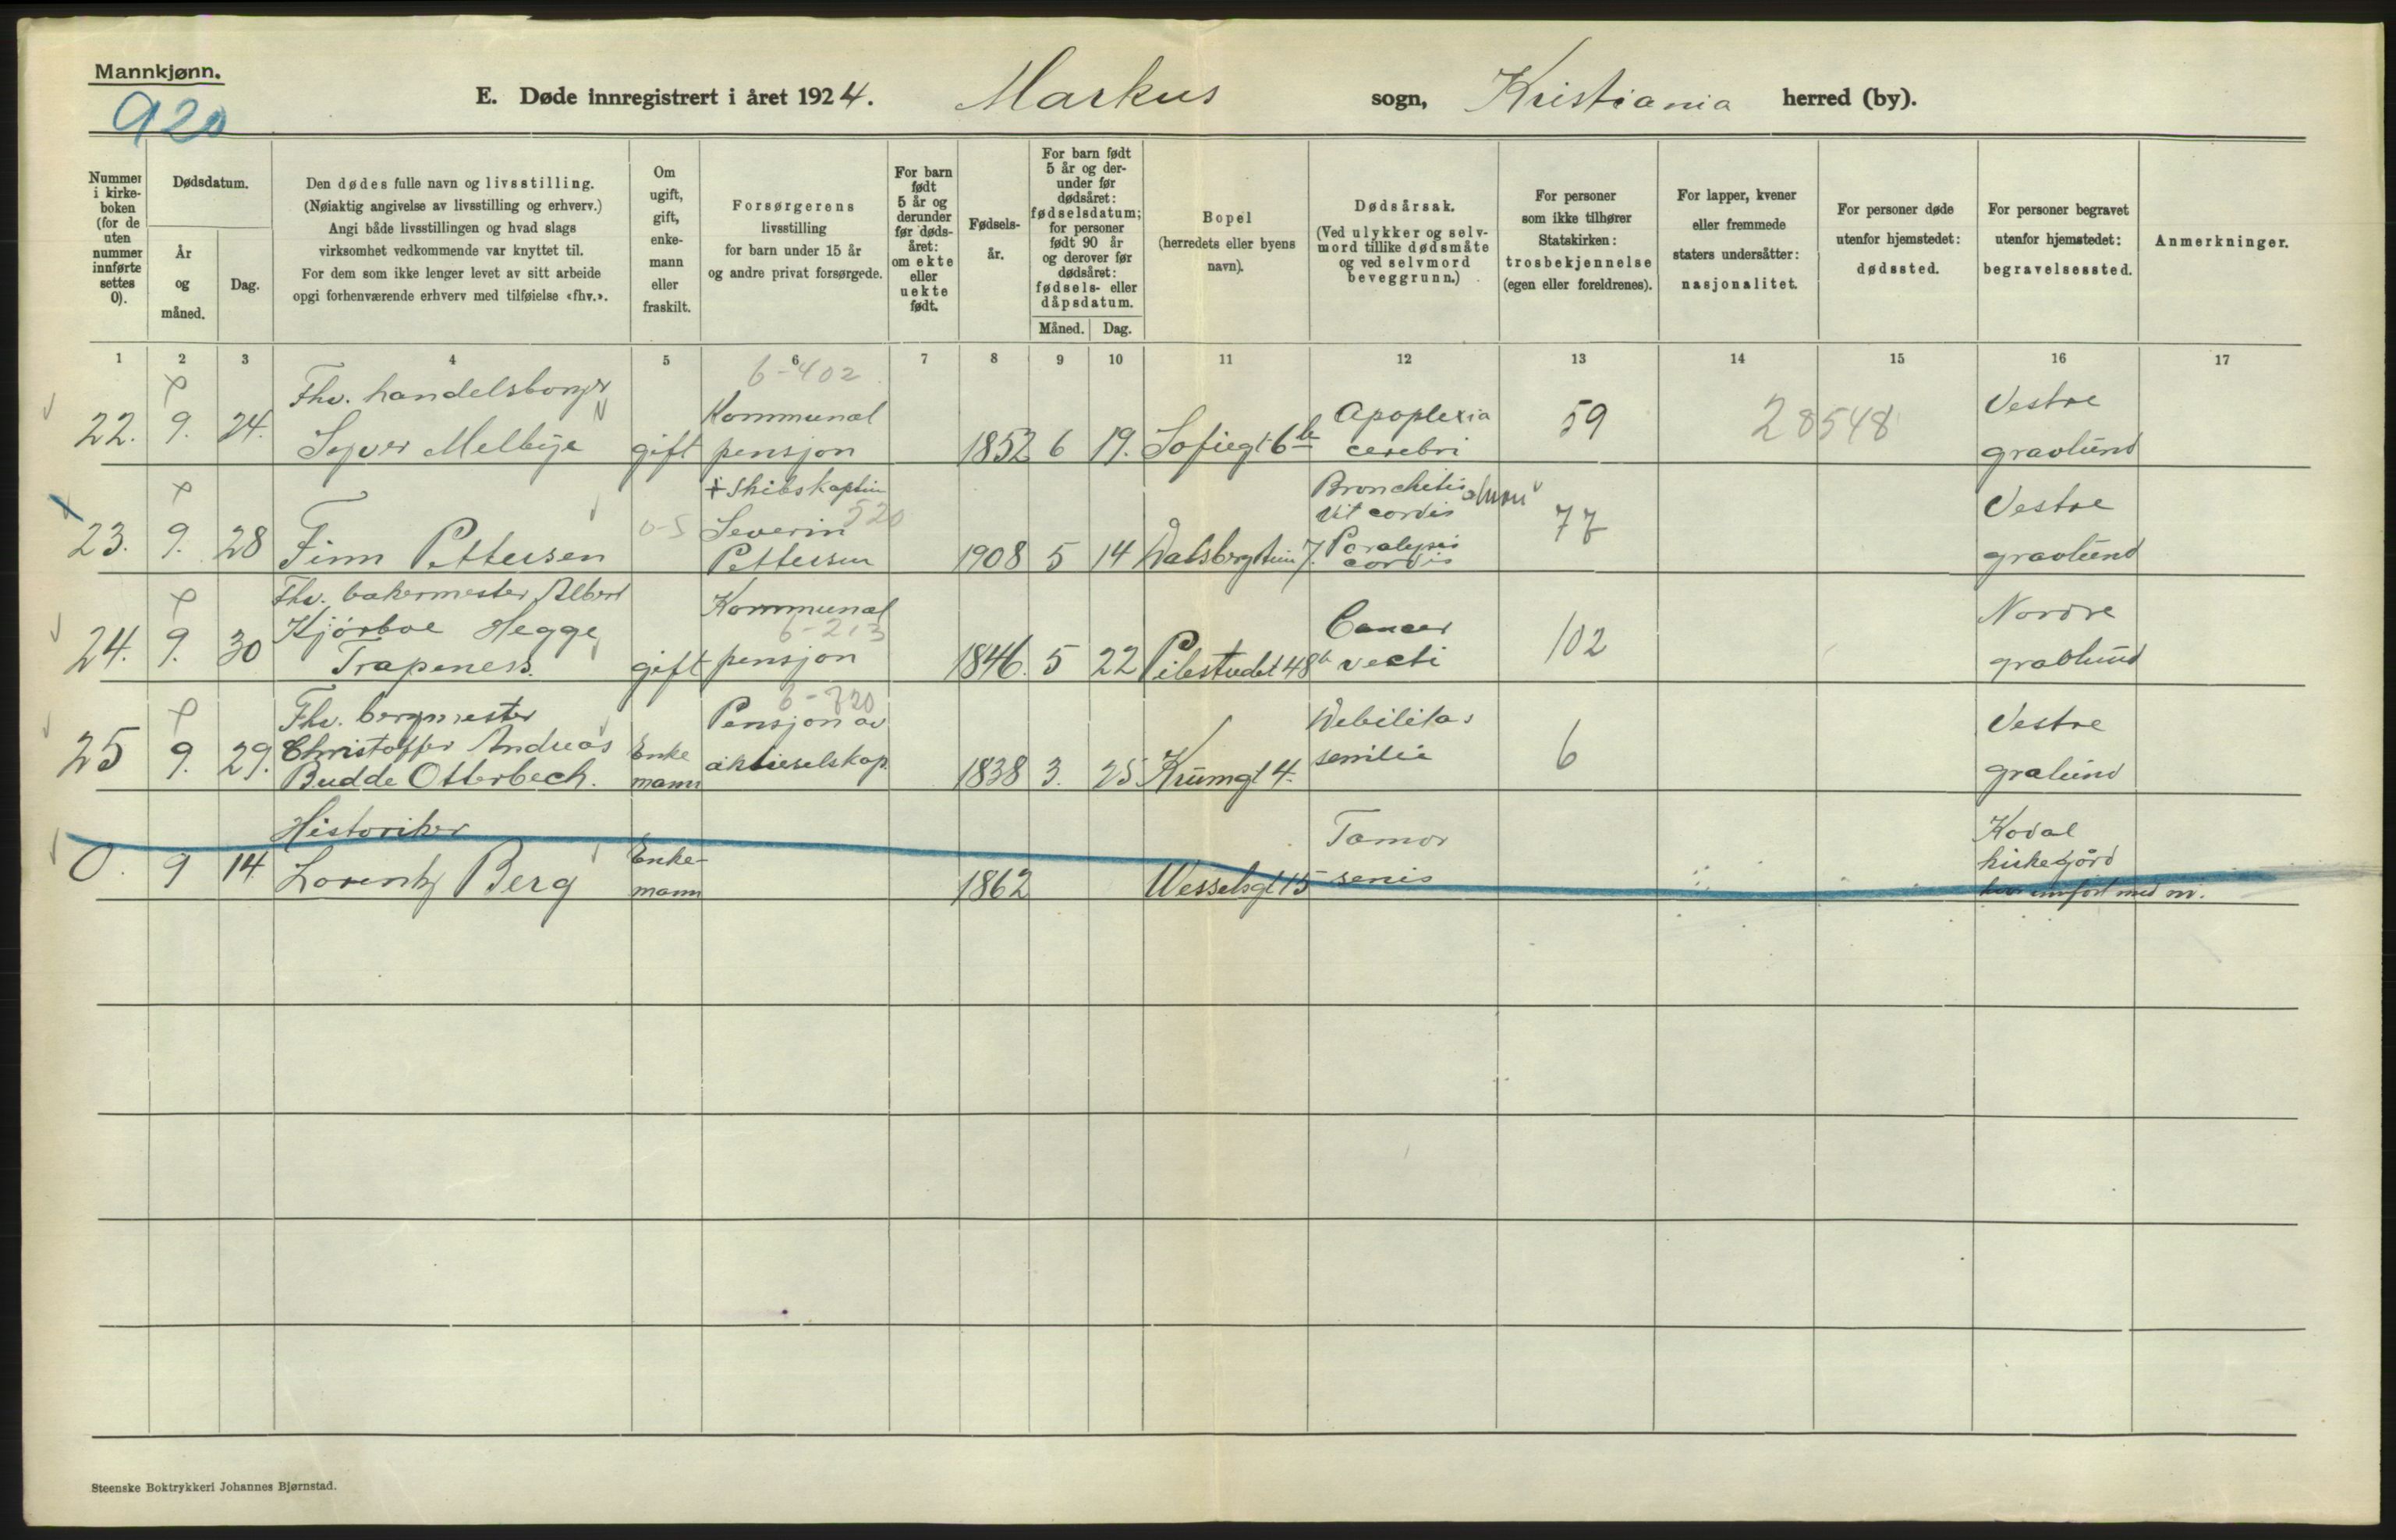 Mannkjønn.
920
E. Døde innregistrert i året 1924. Markus sogn, Kristiania herred (by).
Nummer i kirke- boken (for de uten nummer innførte settes 0).
Dødsdatum.
År og måned.
Dag.
Den dødes fulle navn og livsstilling.
(Nøiaktig angivelse av livsstilling og erhverv.)
Angi både livsstillingen og hvad slags
virksomhet vedkommende var knyttet til.
For dem som ikke lenger levet av sitt arbeide
opgi forhenværende erhverv med tilføielse «fhv.».
Om ugift, gift, enke- mann eller fraskilt.
Forsørgerens
livsstilling
for barn under 15 år
og andre privat forsørgede.
For barn født 5 år og derunder før døds- året: om ekte eller uekte født.
Fødsels- år.
For barn født 5 år og der- under før dødsåret: fødselsdatum; for personer født 90 år og derover før dødsåret: fødsels- eller dåpsdatum.
Måned. Dag.
Bopel
(herredets eller byens
navn).
Dødsårsak.
(Ved ulykker og selv-
mord tillike dødsmåte
og ved selvmord
beveggrunn.)
For personer
som ikke tilhører
Statskirken:
trosbekjennelse
(egen eller foreldrenes).
For lapper, kvener
eller fremmede
staters undersåtter:
nasjonalitet.
For personer døde
utenfor hjemstedet:
dødssted.
For personer begravet
utenfor hjemstedet:
begravelsessted.
Anmerkninger.
1 2 3 4 5 6 7 8 9 10 11 12 13 14 15 16 17
6-402
Fhv. handelsborger
22. 9. 24. Syver Melbye gift Kommunal pensjon 1852 6 19. Sofiegt 6b Apoplexia cerebri 59 28548 Vestre gravlund
23. 9. 28 Finn Pettersen 0-5 + Skibskaptein Severin Pettersen 520 1908 5 14 7. Bronchitis Vit cordis Paralysis cordis 77 Vestre gravlund
Fhv. bakermester Albert
24. 9. 30 Kjørboe Hegge Trapeness. gift Kommunal 6-213 pensjon 1846. 5 22 Pilestredet 48b Cancer recti 102 Nordre gravlund
Fhv. bergmester
25 9. 29. Christoffer Andreas Budde Otterbech. Enke mann Pensjon av aktieselskap. 1838 3. 25 Krumgt 4. Debilitas senilis 6 Vestre gralund
Historiker
0. 9 14 Lorentz Berg Enke- mann 1862 Wesselsgt 15 Tomor senis Kodal kirkegård
Steenske Boktrykkeri Johannes Bjørnstad.